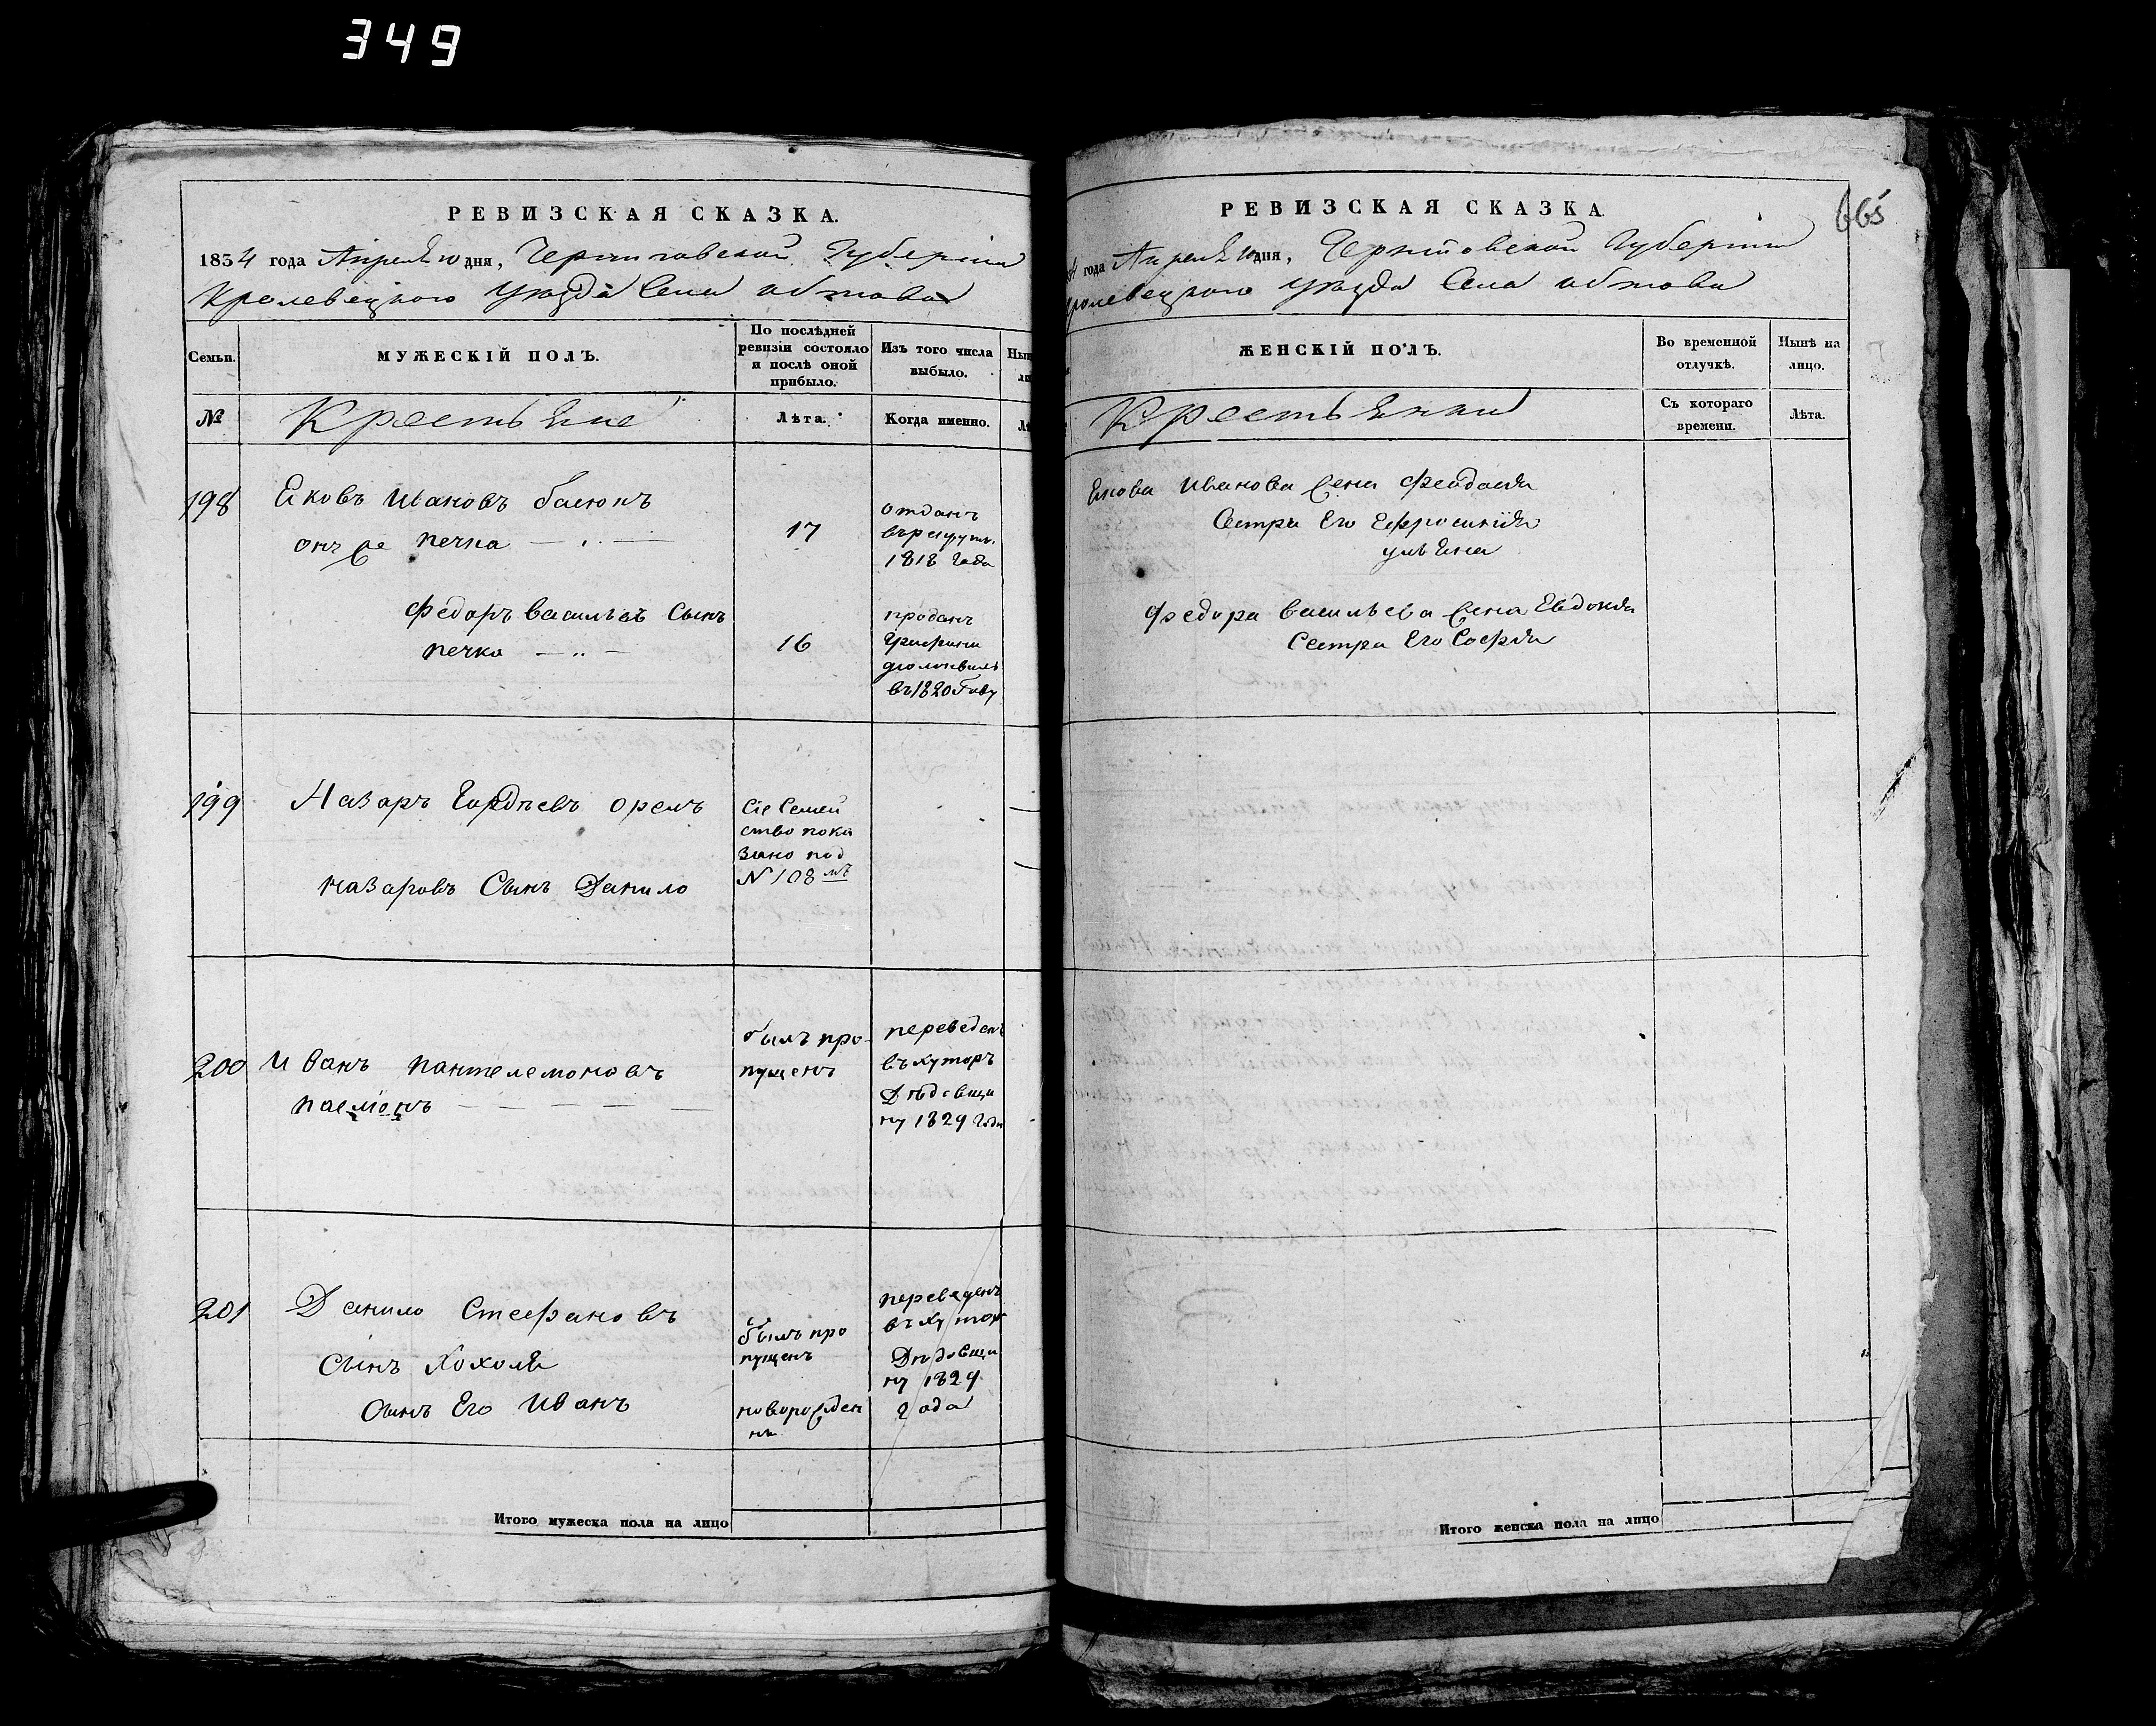 349
РЕВИЗСКАЯ СКАЗКА.
1834 года Апреля 10 дня, Черниговской Губернии
Кролевецкого Уезда Села Обтова
Семьи.
МУЖЕСКІЙ ПОЛЪ.
По послѣдней
ревизіи состояло
и послѣ оной
прибыло.
Изъ того числа
выбыло.
№
Крестьяне
Лѣта.
Когда именно.
198
Яковъ Ивановъ
онъ же печка
17
отданъ
въ рекруты
1818 года
Федоръ Васильевъ Сынъ
печка
16
проданъ
въ 1820 году
199
Назаръ Гордѣевъ орелъ
Назаровъ Сынъ Данило
Сіе Семей
ство пока
зано под
N 108 мъ
200
Иванъ Пантелемоновъ
былъ про
пущенъ
переведенъ
въ хуторъ
Дѣдовщи
ну 1829 года
201
Данило Стефановъ
Сынъ Хохоля
Сынъ Его Иванъ
былъ про
пущенъ
новорожден
нъ
переведенъ
въ хутор
Дѣдовщи
ну 1829
года
Итого мужеска пола на лицо
665
РЕВИЗСКАЯ СКАЗКА.
года Апреля 10 дня, Черниговской Губернии
Кролевецкого Уезда Села Обтова
ЖЕНСКІЙ ПОЛЪ.
Во временной
отлучкѣ.
Нынѣ на
лицо.
Крестьянки
Съ котораго
времени.
Лѣта.
Якова Иванова жена Феодосія
Сестра Его Ефросинія
ульяна
Федора Васильева жена Евдокія
Сестра Его Софія
Итого женска пола на лицо